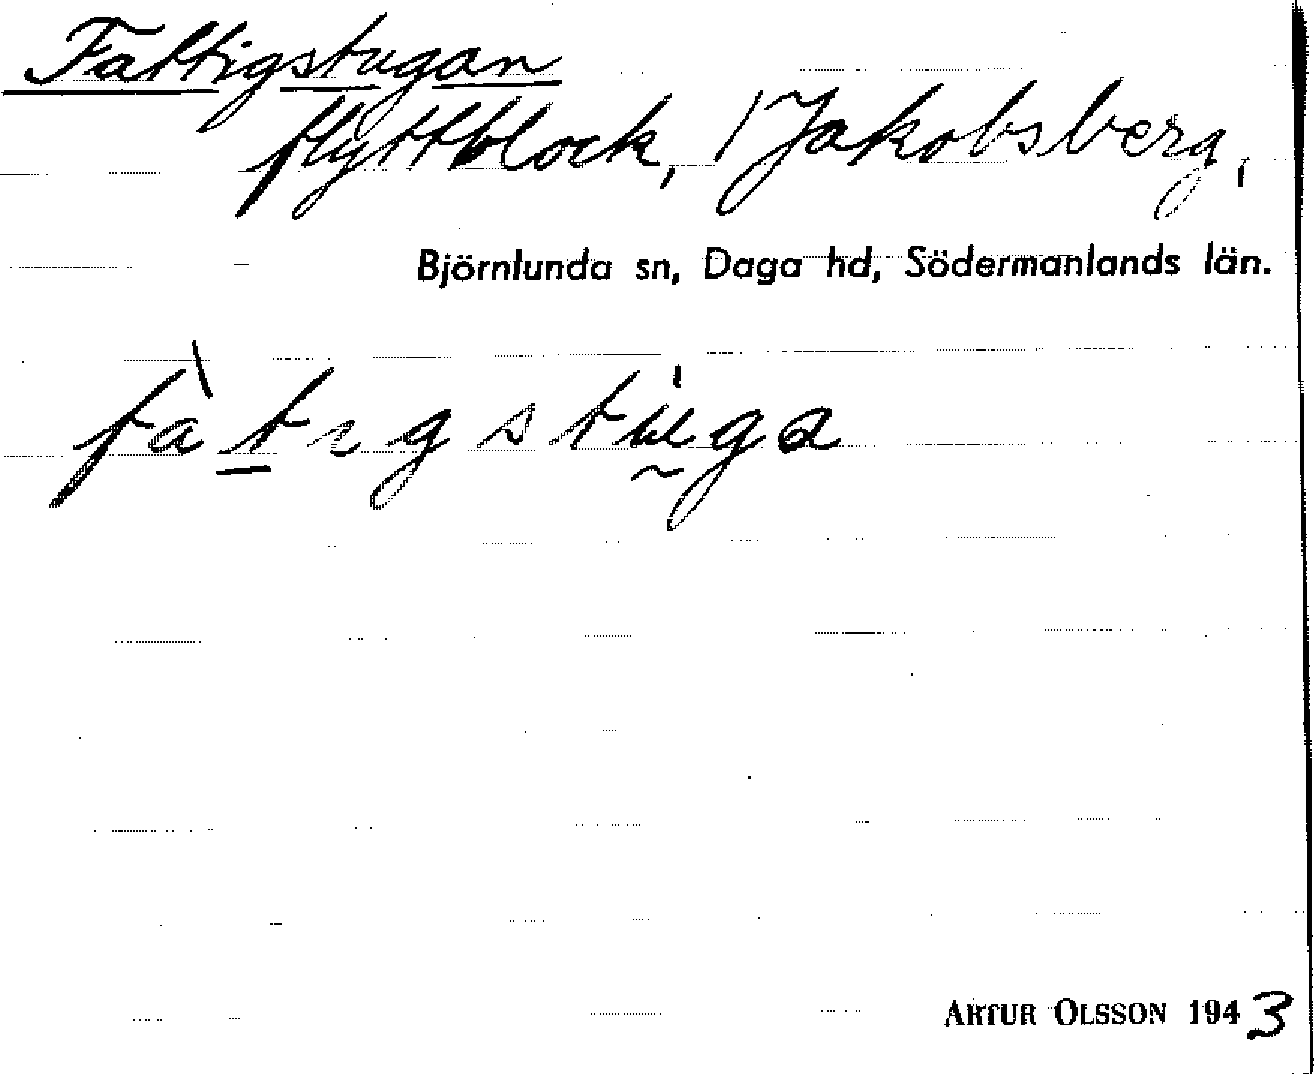 Fattigstugan
flyttblock, / Jakobsberg,
Björnlunda sn, Daga hd, Södermanlands län.
fàtıgstu̍ga
ARTUR OLSSON 1943